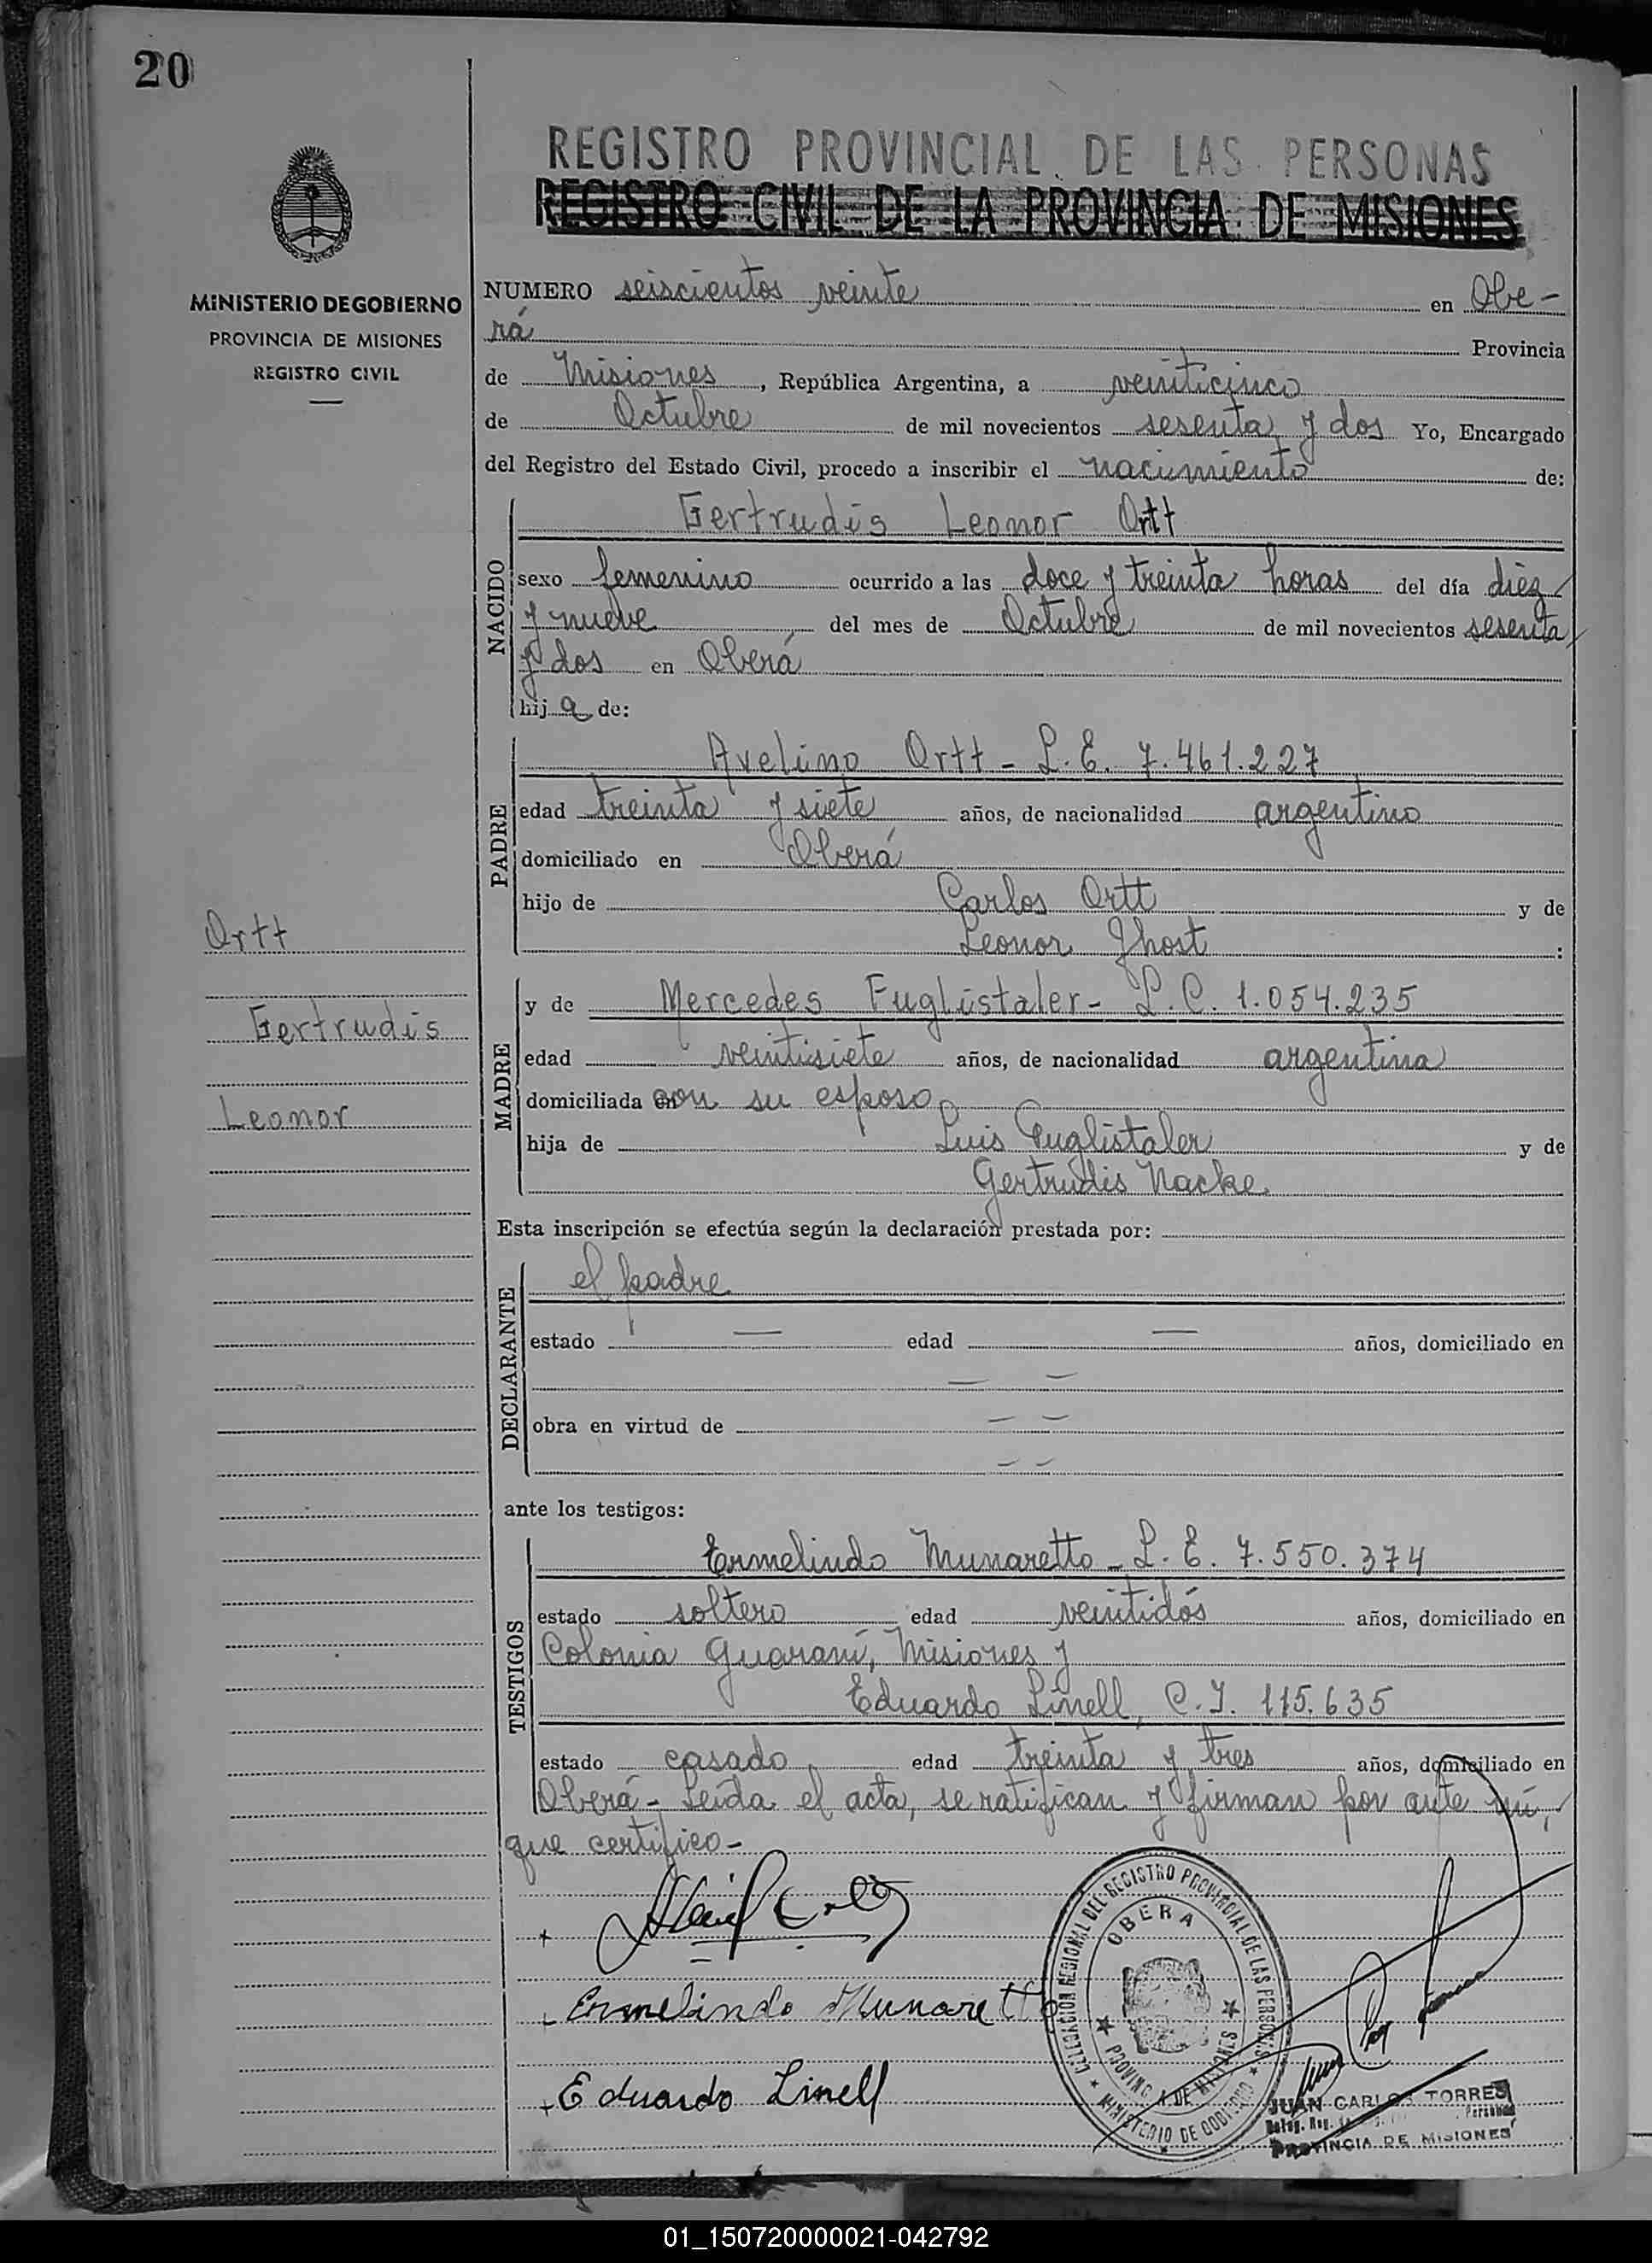 20
REGISTRO PROVINCIAL DE LAS PERSONAS
REGISTRO CIVIL DE LA PROVINCIA DE MISIONES
MINISTERIO DE GOBIERNO
PROVINCIA DE MISIONES
REGISTRO CIVIL
NUMERO seiscientos veinte en Obe-
rá Provincia
de Misiones, República Argentina, a veinticinco
de Octubre de mil novecientos sesenta y dos Yo, Encargado
del Registro del Estado Civil, procedo a inscribir el nacimiento de:
NACIDO
Gertrudis Leonor Ortt
sexo femenino ocurrido a las doce y treinta horas del día diez
y nueve del mes de Octubre de mil novecientos sesenta
y dos en Oberá
hija de:
PADRE
Avelino Ortt - L.E. 7.461.227
edad treinta y siete años, de nacionalidad argentino
domiciliado en Oberá
hijo de Carlos Ortt y de
Leonor Jhost :
Ortt
Gertrudis
Leonor
MADRE
y de Mercedes Fuglistaler - L.C. 1.054.235
edad veintisiete años, de nacionalidad argentina
domiciliada en con su esposo
hija de Luis Fuglistaler y de
Gertrudis Nacke
Esta inscripción se efectúa según la declaración prestada por:
DECLARANTE
el padre
estado — edad — años, domiciliado en
— —
obra en virtud de — —
— —
ante los testigos:
TESTIGOS
Ermelindo Munaretto - L.E. 7.550.374
estado soltero edad veintidós años, domiciliado en
Colonia Guaraní, Misiones y
Eduardo Linell, C.I. 115.635
estado casado edad treinta y tres años, domiciliado en
Oberá - Leída el acta, se ratifican y firman por ante mí,
que certifico -
Ermelindo Munaretto
Eduardo Linell
DELEGACION REGIONAL DEL REGISTRO PROVINCIAL DE LAS PERSONAS
OBERA
PROVINCIA DE MISIONES
MINISTERIO DE GOBIERNO
JUAN CARLOS TORRES
Deleg. Reg. Personas
PROVINCIA DE MISIONES
01_150720000021-042792